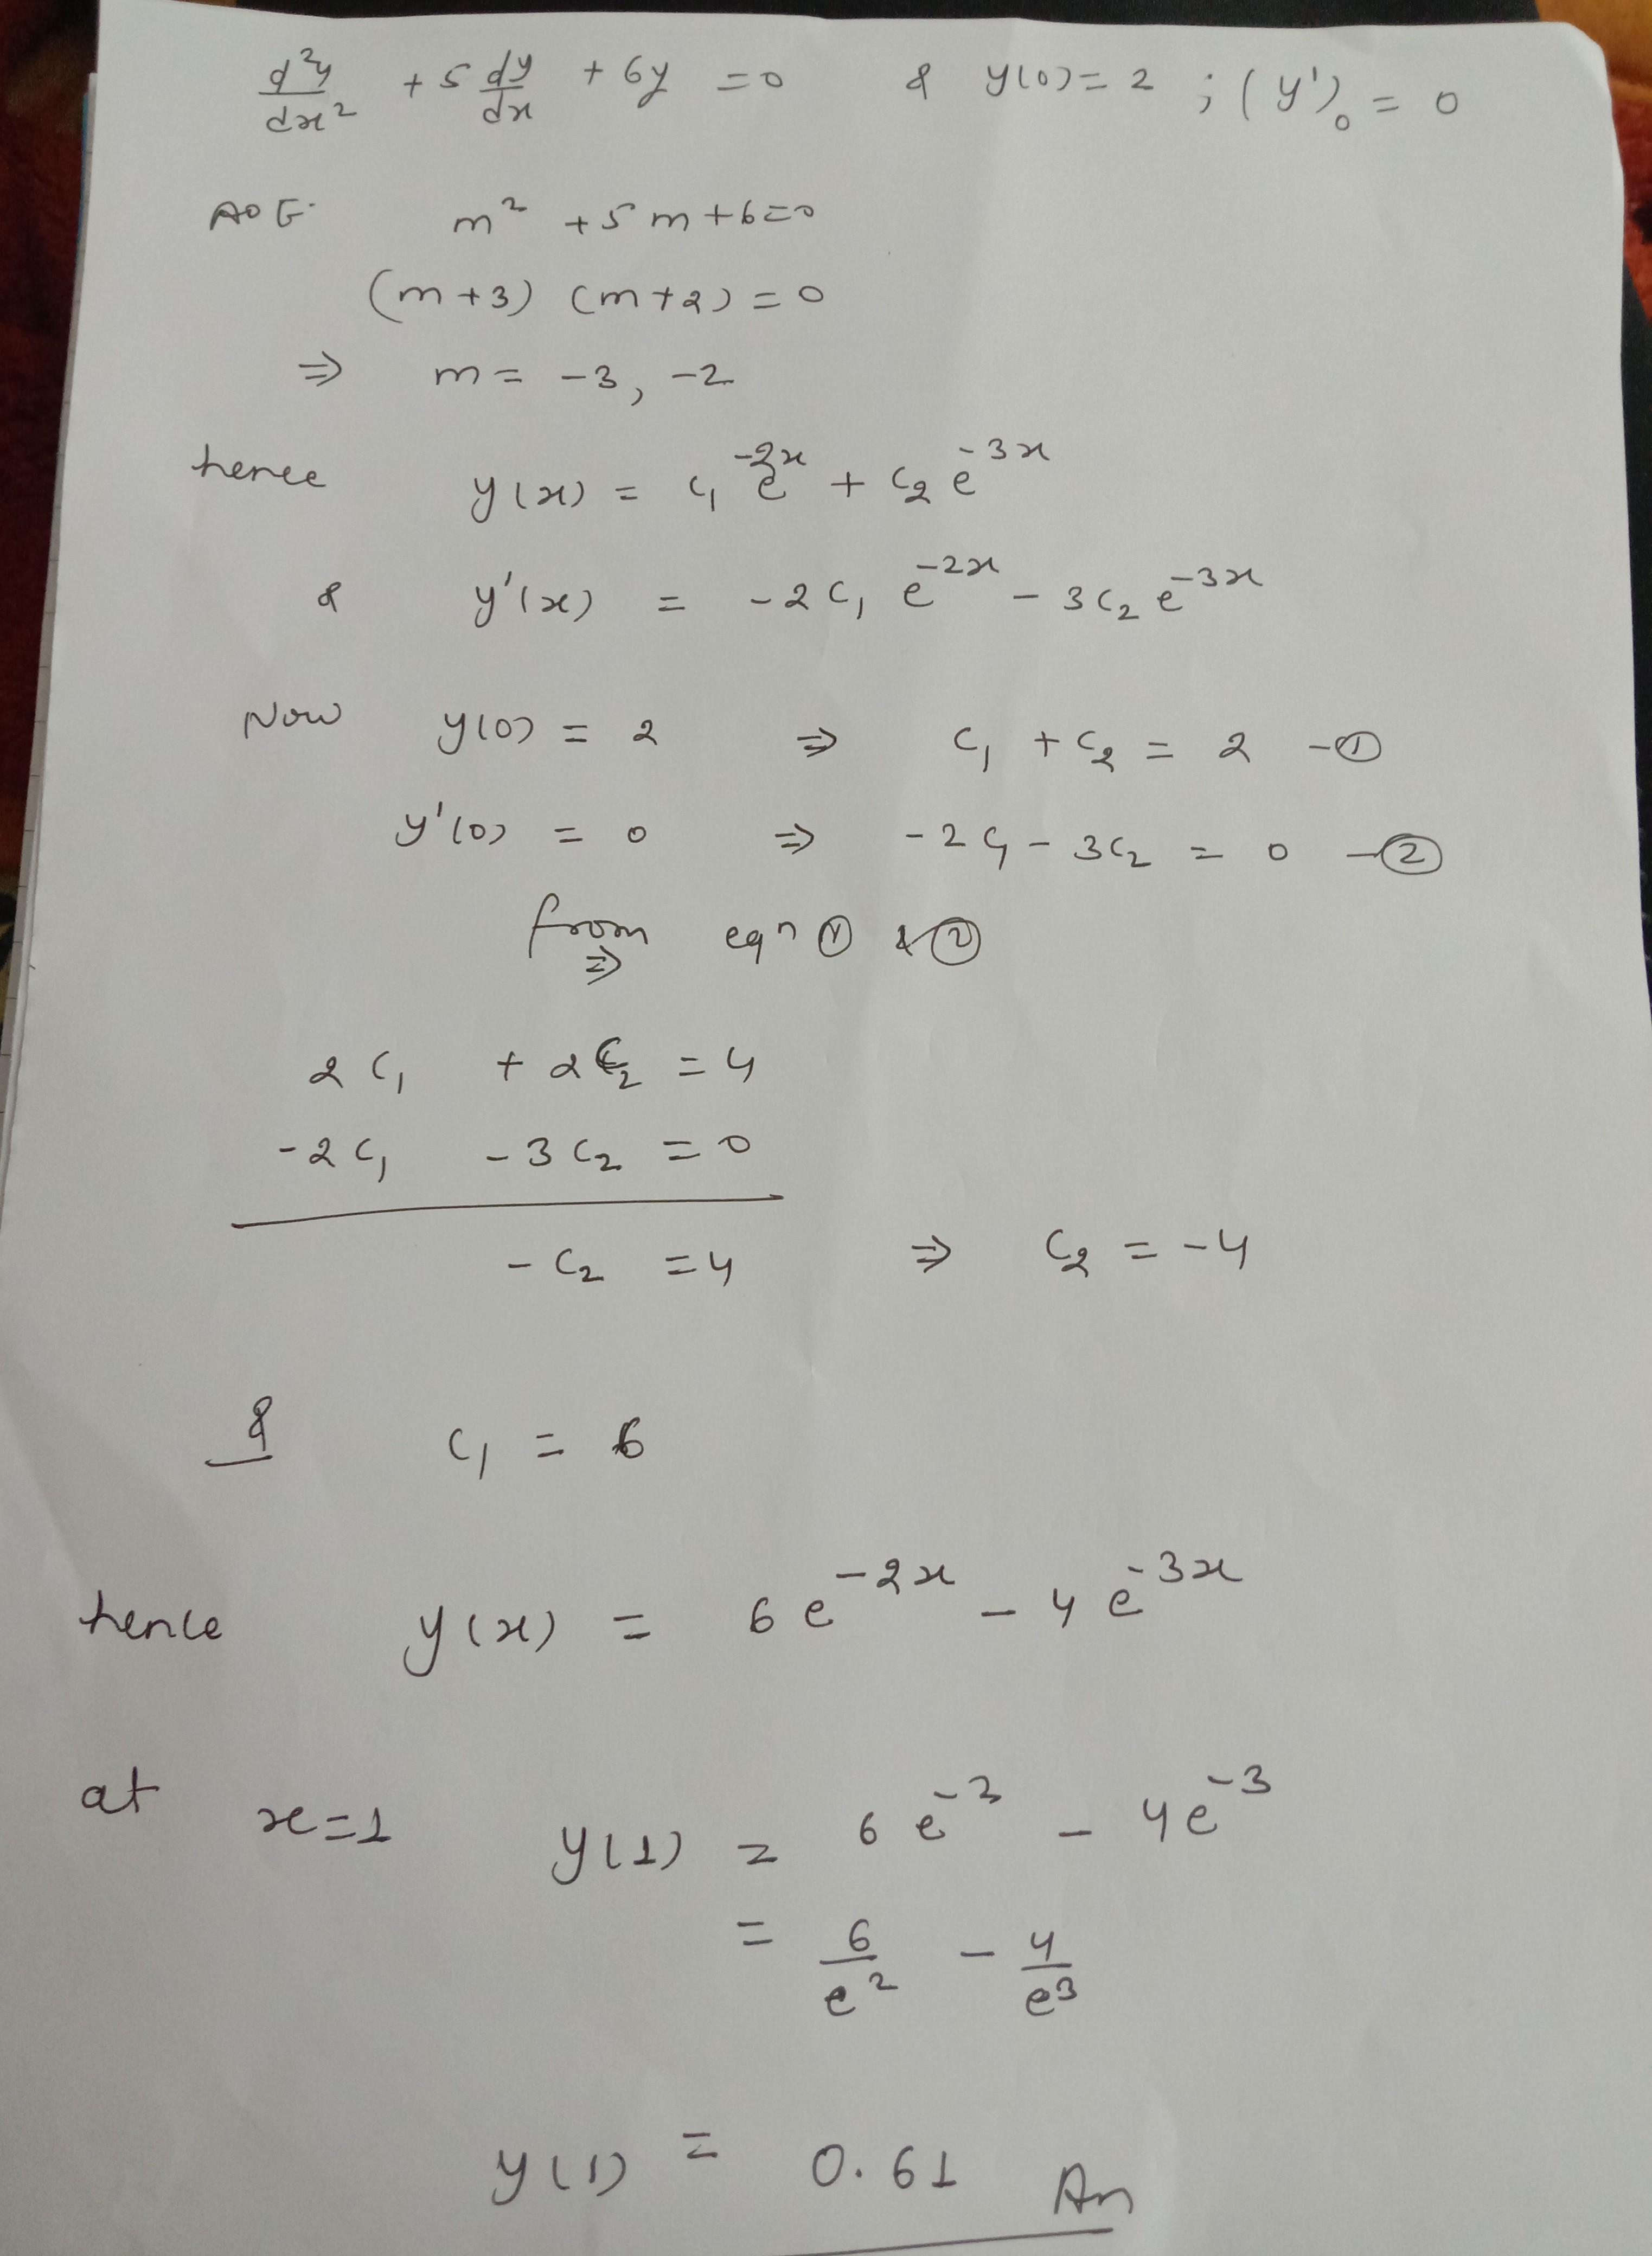 d²y/dx² + 5 dy/dx + 6y = 0 & y(0) = 2 ; (y')₀ = 0
AOE. m² + 5m + 6 = 0
(m+3) (m+2) = 0
⇒ m = -3, -2
hence y(x) = c₁ e^-2x + c₂ e^-3x
& y'(x) = -2c₁ e^-2x - 3c₂ e^-3x
Now y(0) = 2 ⇒ c₁ + c₂ = 2 -①
y'(0) = 0 ⇒ -2c₁ - 3c₂ = 0 -②
from eqn ① & ②
⇒
2c₁ + 2c₂ = 4
-2c₁ - 3c₂ = 0
-c₂ = 4 ⇒ c₂ = -4
& c₁ = 6
hence y(x) = 6e^-2x - 4e^-3x
at x=1 y(1) = 6e^-2 - 4e^-3
= 6/e² - 4/e³
y(1) = 0.61 An